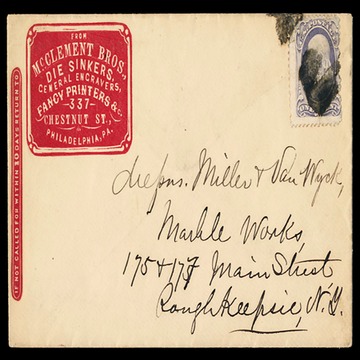 FROM
McCLEMENT BROS.,
DIE SINKERS,
GENERAL ENGRAVERS,
FANCY PRINTERS &c.
-337-
CHESTNUT ST.,
PHILADELPHIA, PA.
IF NOT CALLED FOR WITHIN 10 DAYS RETURN TO
Miller & Van Wyck,
Marble Works,
175 & 177 Main Street
Poughkeepsie, N.Y.